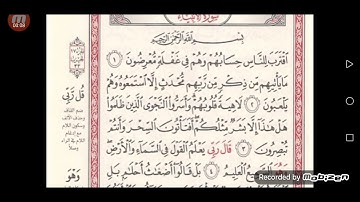 سورة الأنبياء
بِسْمِ اللَّهِ الرَّحْمَٰنِ الرَّحِيمِ
اقْتَرَبَ لِلنَّاسِ حِسَابُهُمْ وَهُمْ فِي غَفْلَةٍ مُعْرِضُونَ ١
مَا يَأْتِيهِمْ مِنْ ذِكْرٍ مِنْ رَبِّهِمْ مُحْدَثٍ إِلَّا اسْتَمَعُوهُ وَهُمْ
يَلْعَبُونَ ٢ لَاهِيَةً قُلُوبُهُمْ وَأَسَرُّوا النَّجْوَى الَّذِينَ ظَلَمُوا
هَلْ هَٰذَا إِلَّا بَشَرٌ مِثْلُكُمْ أَفَتَأْتُونَ السِّحْرَ وَأَنْتُمْ
تُبْصِرُونَ ٣ قَالَ رَبِّي يَعْلَمُ الْقَوْلَ فِي السَّمَاءِ وَالْأَرْضِ
الْعَلِيمُ ٤ بَلْ قَالُوا أَضْغَاثُ أَحْلَامٍ بَلِ
قُل رَّبِّي
وَهُوَ
00:09
Recorded by Mobizen